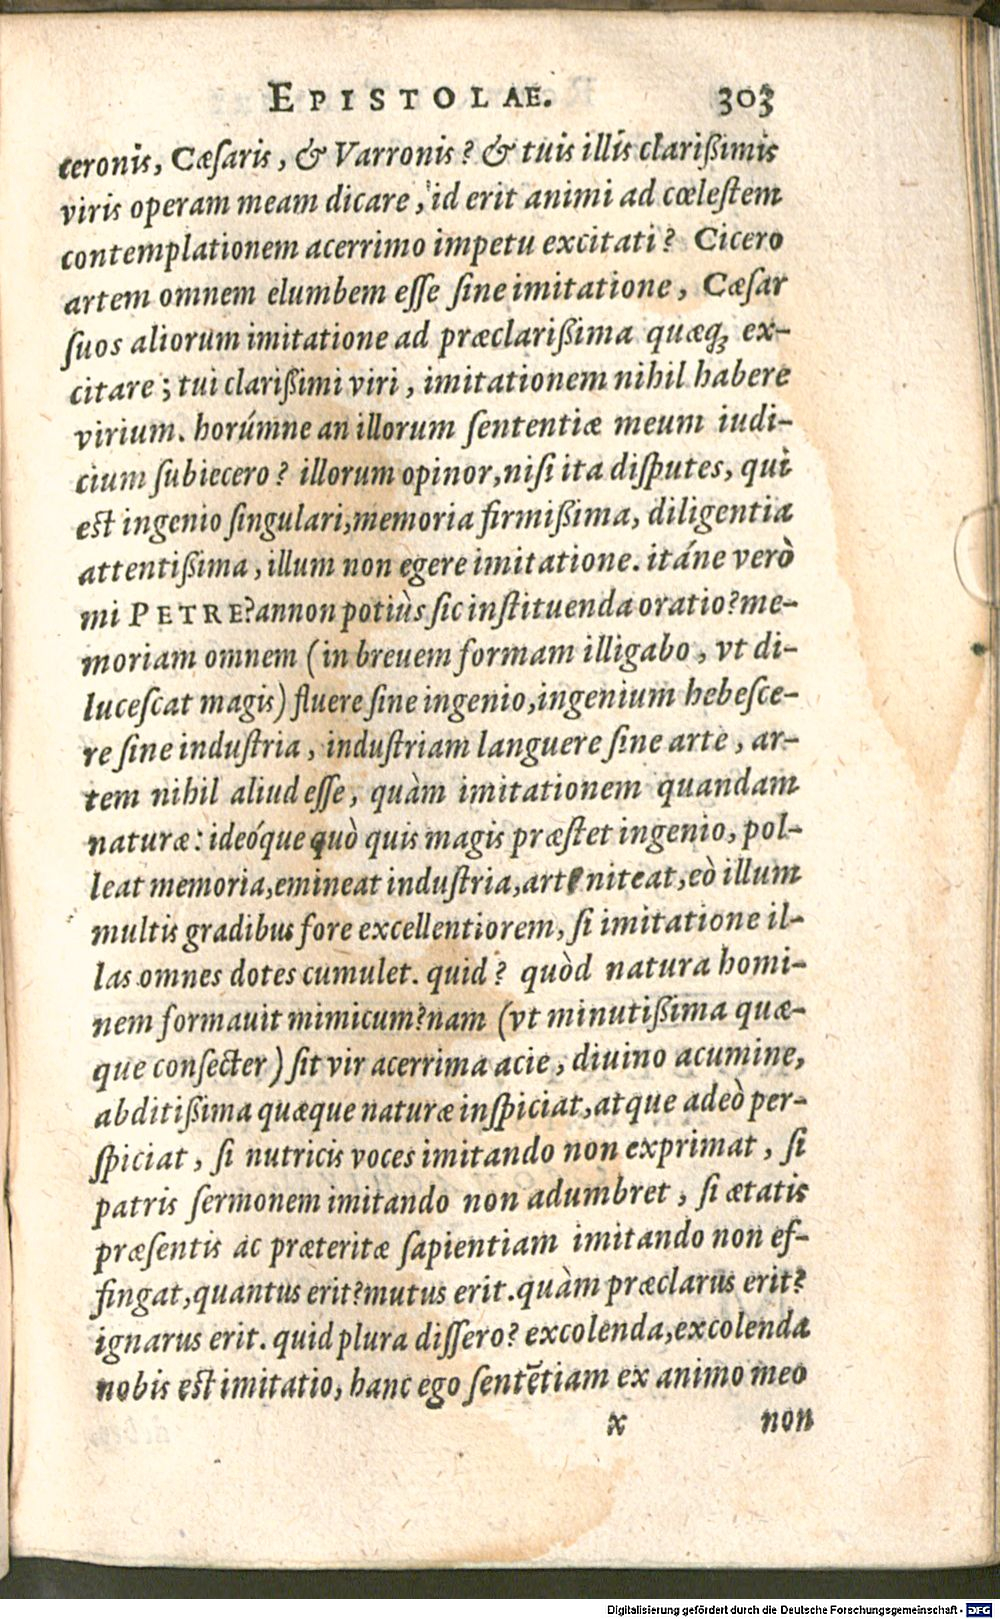 EPISTOLAE. 303
ceronis, Cæsaris, & Varronis? & tuis illis clarißimis
viris operam meam dicare, id erit animi ad cœlestem
contemplationem acerrimo impetu excitati? Cicero
artem omnem elumbem esse sine imitatione, Cæsar
suos aliorum imitatione ad præclarißima quæq; ex-
citare; tui clarißimi viri, imitationem nihil habere
virium. horúmne an illorum sententiæ meum iudi-
cium subiecero? illorum opinor, nisi ita disputes, qui
est ingenio singulari, memoria firmißima, diligentia
attentißima, illum non egere imitatione. itáne verò
mi PETRE? annon potiùs sic instituenda oratio? me-
moriam omnem (in breuem formam illigabo, vt di-
lucescat magis) fluere sine ingenio, ingenium hebesce-
re sine industria, industriam languere sine arte, ar-
tem nihil aliud esse, quàm imitationem quandam
naturæ: ideóque quò quis magis præstet ingenio, pol-
leat memoria, emineat industria, arte niteat, eò illum
multis gradibus fore excellentiorem, si imitatione il-
las omnes dotes cumulet. quid? quòd natura homi-
nem formauit mimicum? nam (vt minutißima quæ-
que consecter) sit vir acerrima acie, diuino acumine,
abditißima quæque naturæ inspiciat, atque adeò per-
spiciat, si nutricis voces imitando non exprimat, si
patris sermonem imitando non adumbret, si ætatis
præsentis ac præteritæ sapientiam imitando non ef-
fingat, quantus erit? mutus erit. quàm præclarus erit?
ignarus erit. quid plura dissero? excolenda, excolenda
nobis est imitatio, hanc ego sentētiam ex animo meo
x non
Digitalisierung gefördert durch die Deutsche Forschungsgemeinschaft - DFG